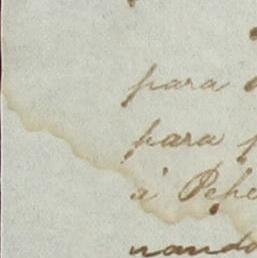 para
para
à Pehe
nando